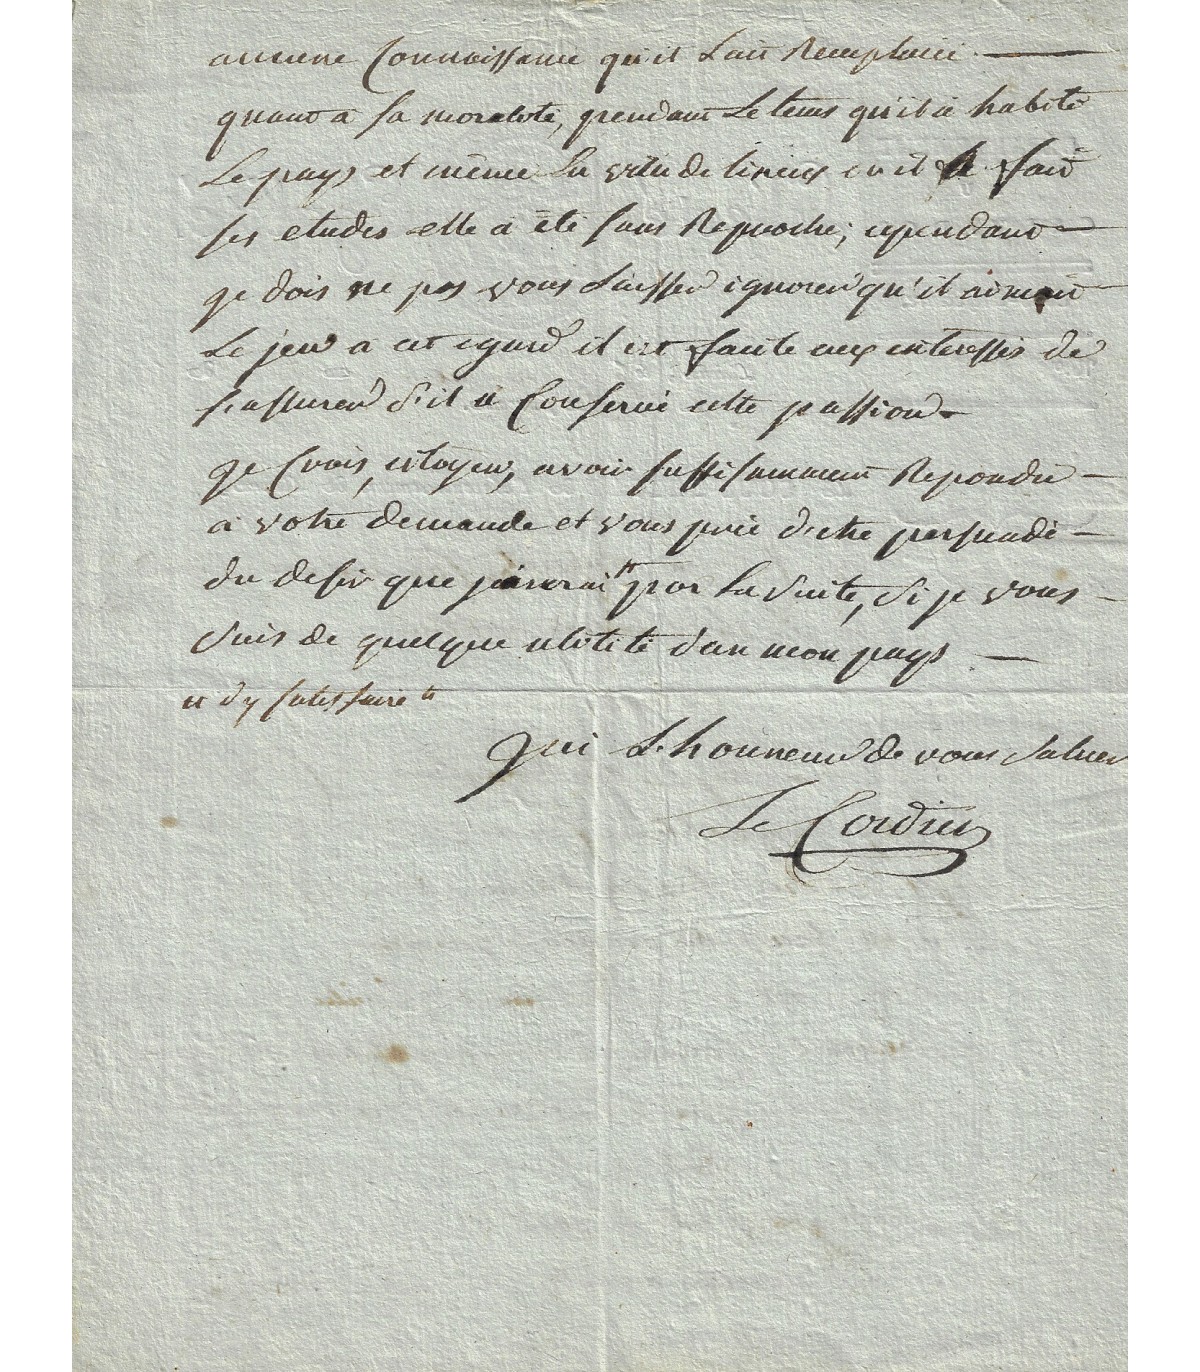 aucune Connaissance qu'il L'ait Remplacé
quant a sa moralité, pendant Le tems qu'il a habité
Le pays et même La ville de Lisieux ou il a fait
ses etudes elle a été sans Reproche; cependant
je dois ne pas vous Laisser ignorer qu'il aimait
Le jeu a cet egard il est facile aux interessés de
s'assurer s'il a Conservé cette passion.
je Crois, citoyen, avoir suffisamment Repondu
a votre demande et vous prie d'etre persuadé
du desir que j'aurai " par La suite, si je vous
suis de quelque utilité dan mon pays
" d'y satisfaire "
j'ai L'honneur de vous saluer
Le Cordier